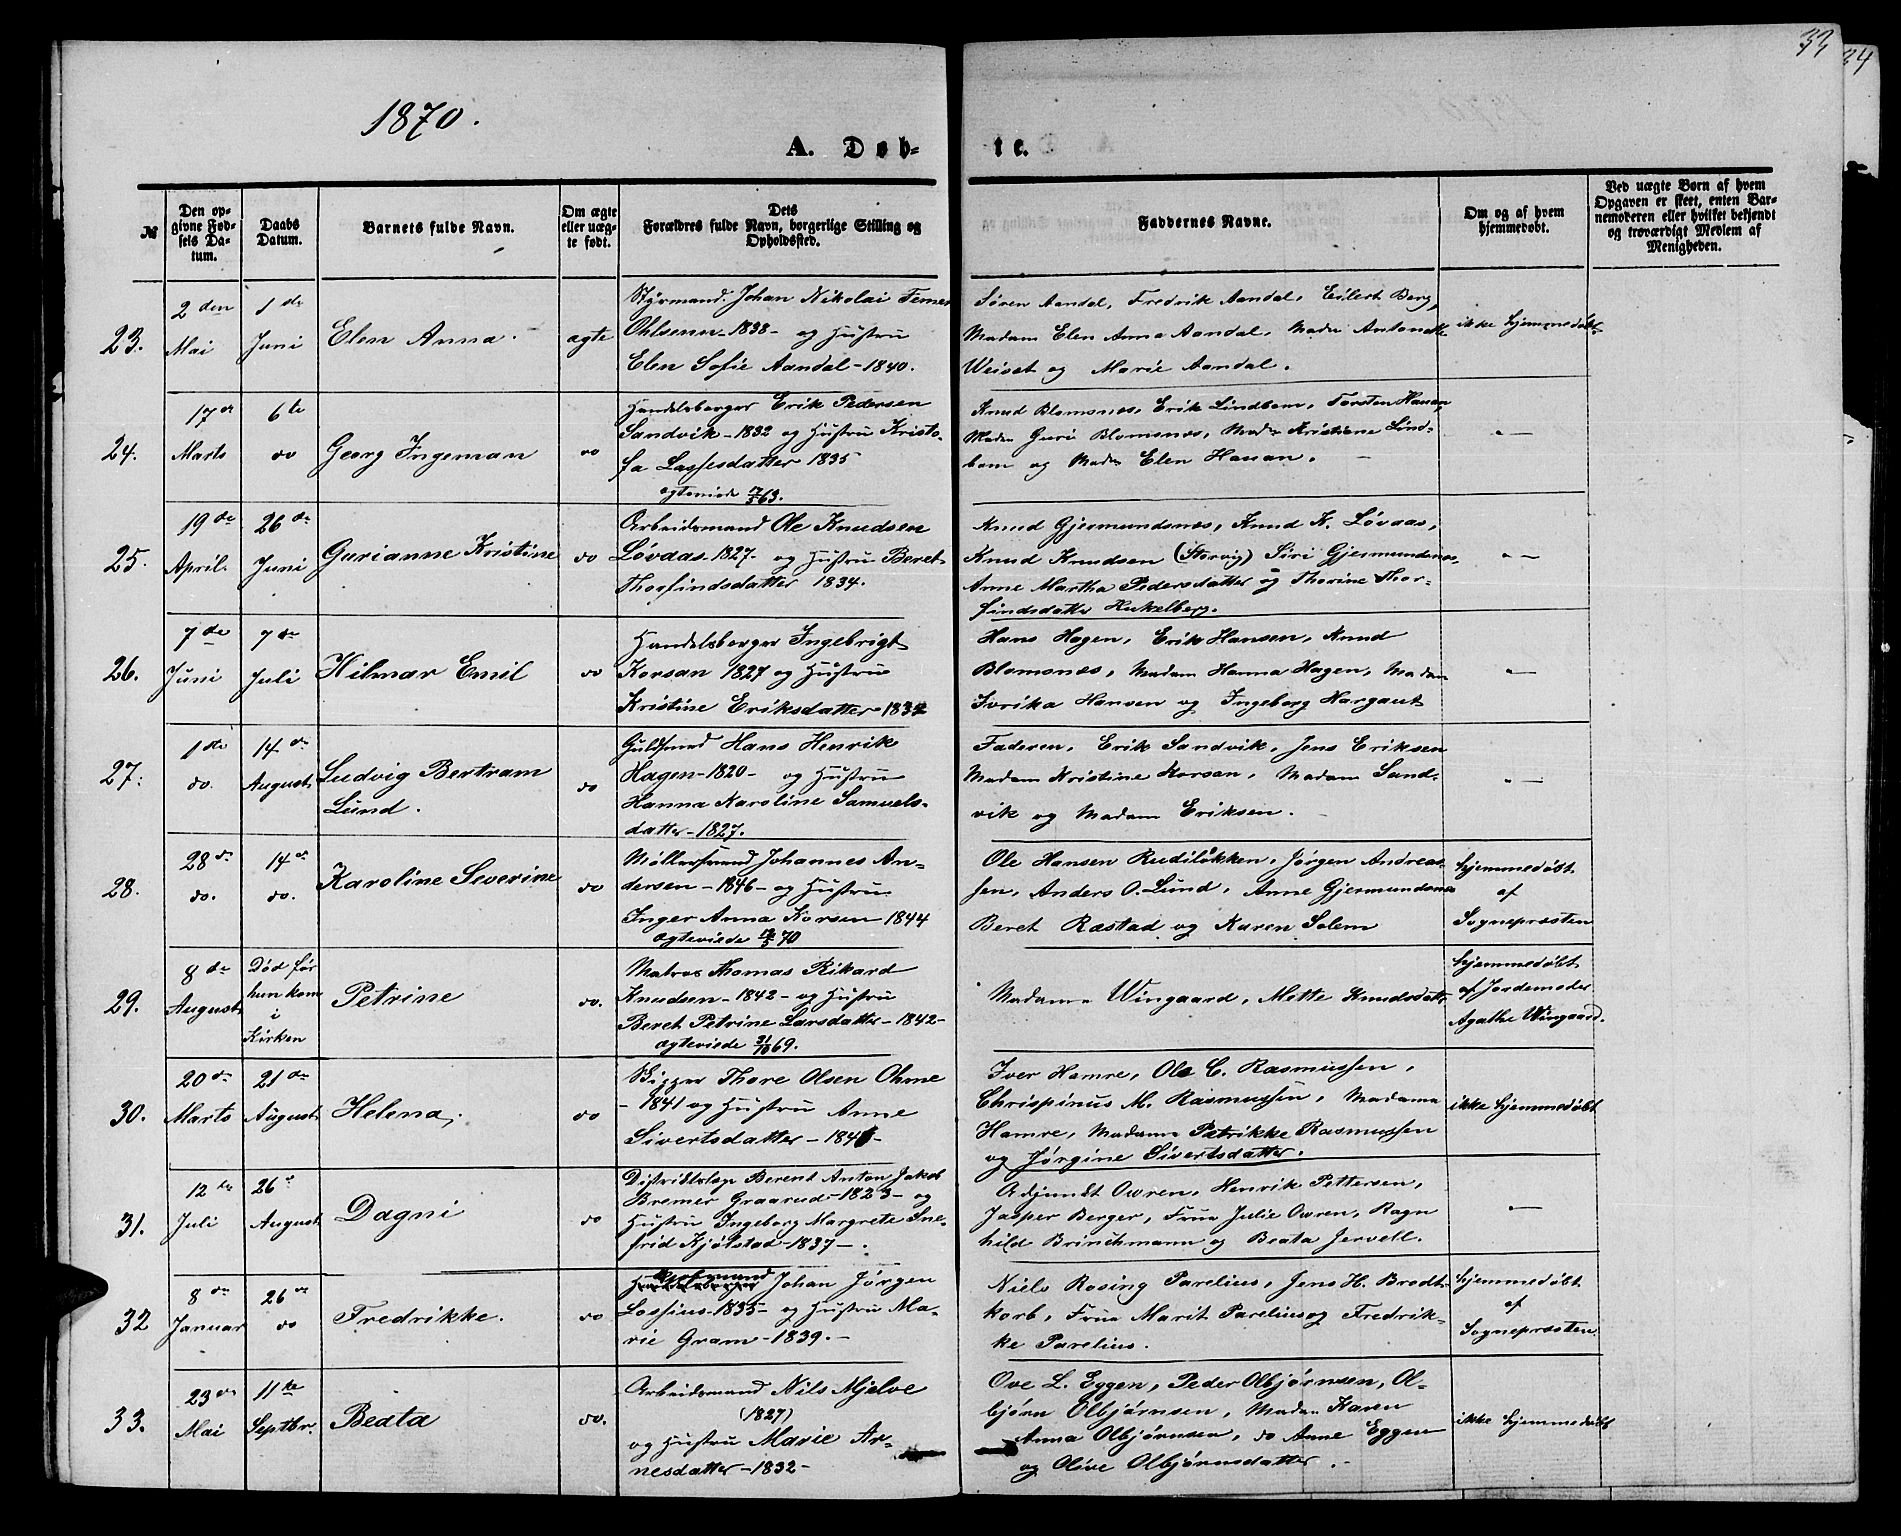 33
34
1870.
A. Døb-
te.
№
Den op-
givne Fød-
sels Da-
tum.
Daabs
Datum.
Barnets fulde Navn.
Om ægte
eller uæg-
te født.
Dets
Forældres fulde Navn, borgerlige Stilling og
Opholdssted.
Faddernes Navne.
Om og af hvem
hjemmedøbt.
Ved uægte Børn af hvem
Opgaven er skeet, enten Bar-
nemoderen eller hvilket bekjendt
og troværdigt Medlem af
Menigheden.
23.
2 den
Mai
1 ste
Juni
Elen Anna.
ægte
Styrmand Johan Nikolai
Ohlsenn-1838- og Hustru
Elen Sofie Aandal-1840.
Søren Aandal, Fredrik Aandal, Eilert Berg,
Madam Elen Anna Aandal, Madm Antonette
Weiset og Marie Aandal.
ikke hjemmedøbt
24.
17 de
Marts
6 te
do
Georg Ingeman
do
Handelsborger Erik Pedersen
Sandvik-1832 og Hustru Kristo-
fa Lassesdatter 1835
ægteviede 63.
Knud Blomsnes, Erik Lindbom, Torsten Hauan,
Madm Guri Blomsnes, Madm Kristiane Lind-
bom og Madm Elen Hauan.
"—
25.
19 de
April.
26 de
Juni
Gurianne Kristine
do
Arbeidsmand Ole Knudsen
Løvaas-1827- og Hustru Beret
Thorfindsdatter 1834.
Knud Gjermundsnes, Knud K. Løvaas,
Knud Knudsen (Storvig) Siri Gjermundsnes,
Anne Martha Pedersdatter og Thorine Thor-
findsdatter Heukelberg.
"—
26.
7 de
Juni
7 de
Juli
Hilmar Emil
do
Handelsborger Ingebrigt
Korsan 1827 og Hustru
Kristine Eriksdatter-1834
Hans Hagen, Erik Hansen, Knud
Blomsnes, Madam Hanna Hagen, Madam
Hansen og Ingeborg Hargaut
"—
27.
1 ste
do.
14 de
August
Ludvig Bertram
Lund.
do
Guldsmed Hans Henrik
Hagen-1820- og Hustru
Hanna Karoline Samuels-
datter-1827.
Faderen, Erik Sandvik, Jens Eriksen
Madam Kristine Korsan, Madam Sand-
vik og Madam Eriksen.
"—
28.
28 de
do.
14 de
do.
Karoline Severine
do
Møllersvend Johannes An-
dersen-1846- og Hustru
Inger Anna Korsen 1844
ægteviede 70
Ole Hansen Rudiløkken, Jørgen Andreas-
sen, Anders O. Lund, Anne Gjermundsnes
Beret Rastad og Karen Solem
hjemmedøbt
af
Sognepræsten
29.
8 de
August
Død før
hun kom
i
Kirken
Petrine
do.
Matros Thomas Rikard
Knudsen-1842- og Hustru
Beret Petrine Larsdatter-1842-
ægteviede 31/10 69.
Madama Wingaard, Mette Knudsdatr
hjemmedøbt
af Jordemoder
Agathe Wingaard.
30.
20 de
Marts
21 de
August
Helena,
do
Thore Olsen Ohme
-1841 og Hustru Anne
Sivertsdatter-1841-
Iver Hamre, Ole C. Rasmussen,
Chrispinus M. Rasmussen, Madama
Hamre, Madama Patrikke Rasmussen
og Jørgine Sivertsdatter.
ikke hjemmedøbt
31.
12 te
Juli
26 de
August
Dagni
do
Distriktslæge Berent Anton Jakob
Bremer Graarud-1823- og
Hustru Ingeborg Margrete Sne-
frid Kjølstad-1837-.
Adjunkt Owren, Henrik Pettersen,
Jasper Berger, Frua Julie Owren, Ragn
hild Brinchmann og Beata Jervell.
—
32
8 de
Januar
26 de
do
Fredrikke.
do
Johan Jørgen
Lossius-1835- og Hustru Ma-
rie Gram-1839.-
Niels Rosing Parelius, Jens H. Brodt-
korb, Frua Marit Parelius og Fredrik-
ke Parelius.
hjemmedøbt
af
Sognepræsten
33.
23 de
Mai
11 te
Septbr.
Beata
do.
Arbeidsmand Nils Mjelve
(1827)
og Hustru Marie Ar-
nesdatter-1832-
Ove L. Eggen, Peder Olbjørnsen, Ol-
bjørn Olbjørnsen, Madm Karen
Anna Olbjørnsen, do Anne Eggen
og Olive Olbjørnsdatter.-
ikke hjemmedøbt